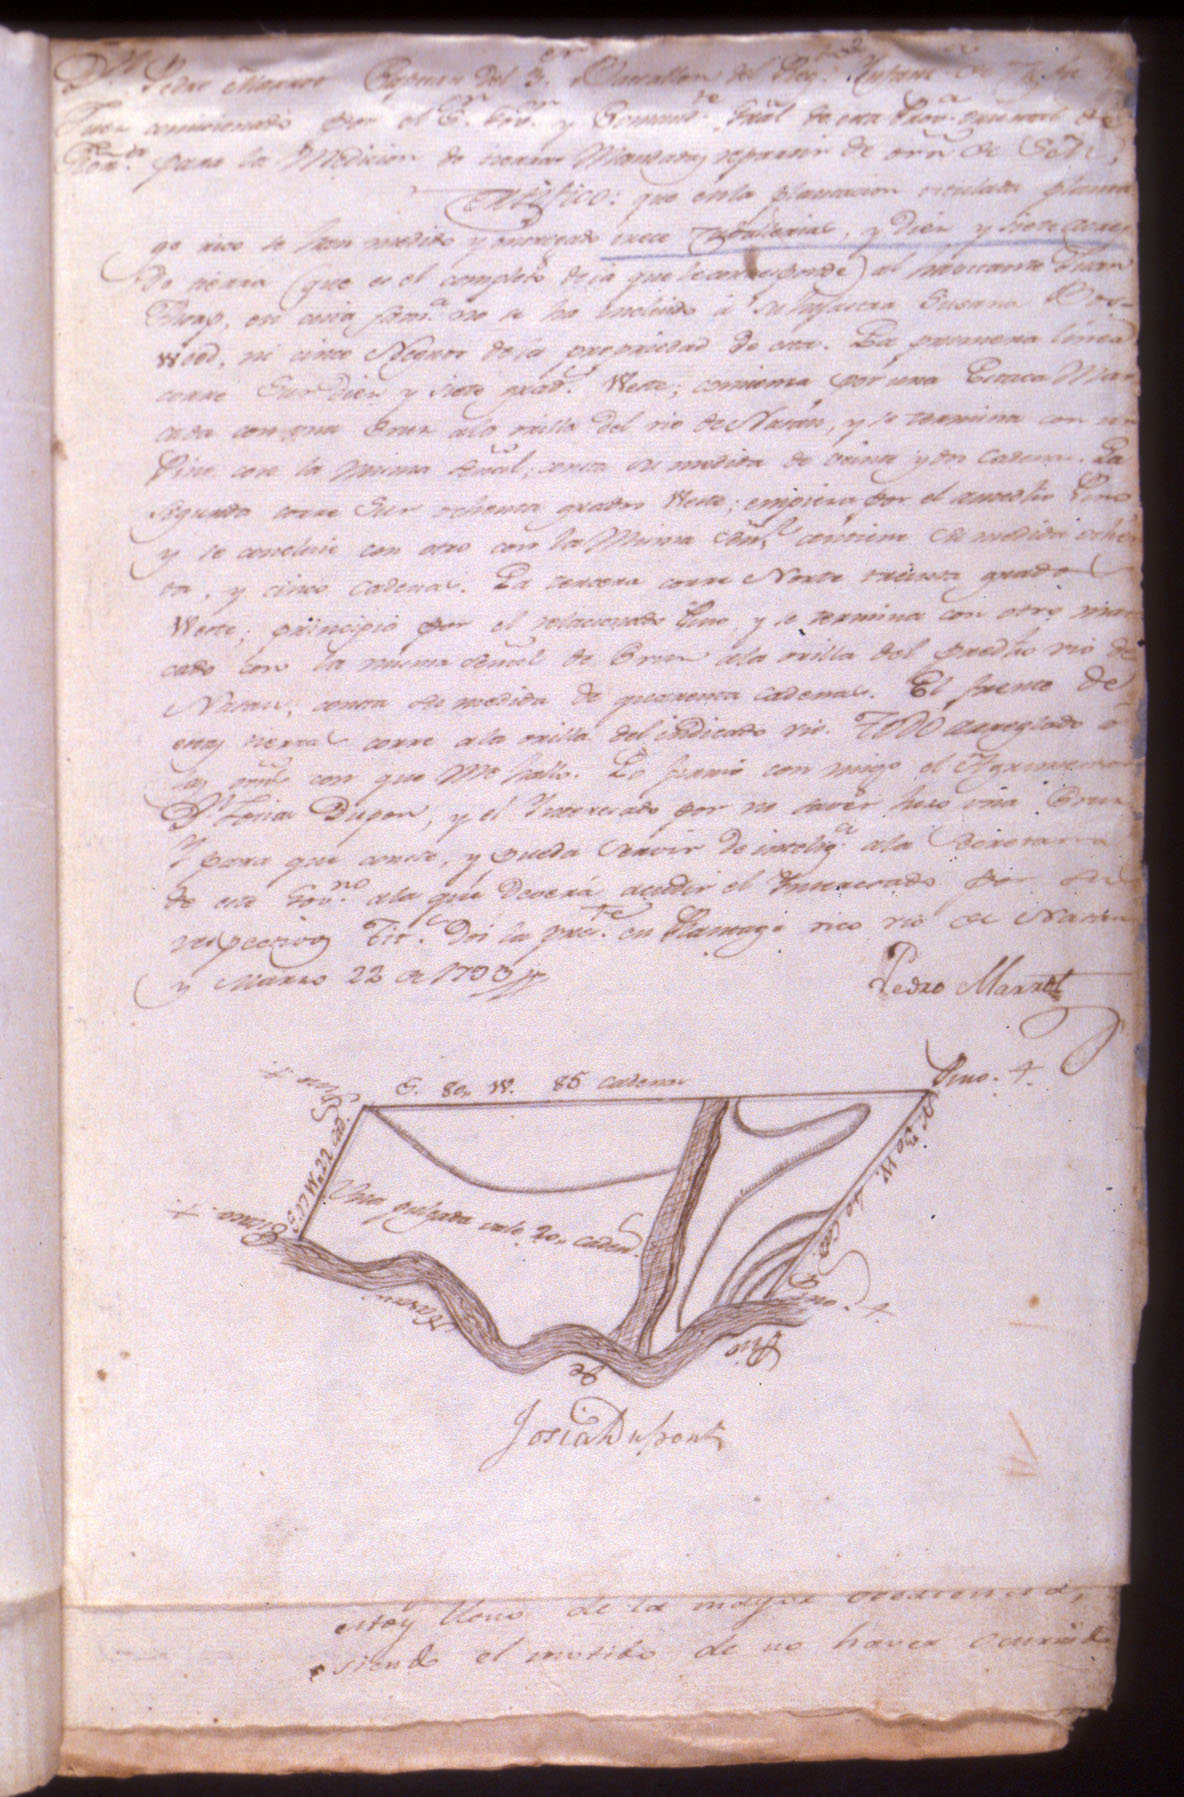 Dn. Pedro Marrot Capitan del 3.er Batallon del Reg.to Infant.a de
comisionado por el S.or Gov.or y Comand.te Gral de esta Prov.a
para la Medicion de tierras Mandadas repartir de orn de S. M.
Certifico: que en la plantacion titulada planta
ge rico se han medido y entregado trece Caballerias, y Diez y siete Acres
de tierra (que es el completo de la que le corresponde) al havitante Juan
en cuia fam.a no se ha incluido á su hijastra Susana
wood, ni cinco Negros de la propriedad de esta. La primera linea
corre Sur Diez y siete grad.s Weste; comienza por una Estaca Mar
cada con una Cruz ala orilla del rio de Nasau, y se termina con un
Pino con la misma Señal; consta su medida de veinte y dos Cadenas. La
segunda corre Sur ochenta grados Weste; empieza por el antedho Pino
y se concluie con otro con la Misma Señl, contiene su medida ochen
ta, y cinco Cadenas. La tercera corre Norte treinta grados
Weste; principió por el relacionado Pino, y se termina con otro mar
cado con la misma señal de Cruz ala orilla del predho rio de
Nasau; consta su medida de quarenta cadenas. El frente de
estas tierras corre ala orilla del indicado rio. TODO arreglado á
las orns con que Me hallo. Lo firmó con migo el Agrimensor
Dn. Josias Dupon, y el Interesado por no saver hiso una Cruz
Y para que conste, y pueda Servir de intelig.a ala Secretaria
de este Gov.no ala que Deverá acudir el Interesado por su
respectivo Tit.o Doi la pres.te en Plantage rico rio de Nasau
y Marzo 22 de 1793
Pedro Marrot
Pino. +
S. 80,, W. 85 Cadenas
Pino. +
S. 17 W. 22 Cad.s
N. 30 W. 40 Cad.s
Una pulgada vale 20,, Caden.s
Pino. +
Rio
de
Nasau
Josia Dupont
estoy lleno de la mayor
siendo el motibo de no haver Ocurrido